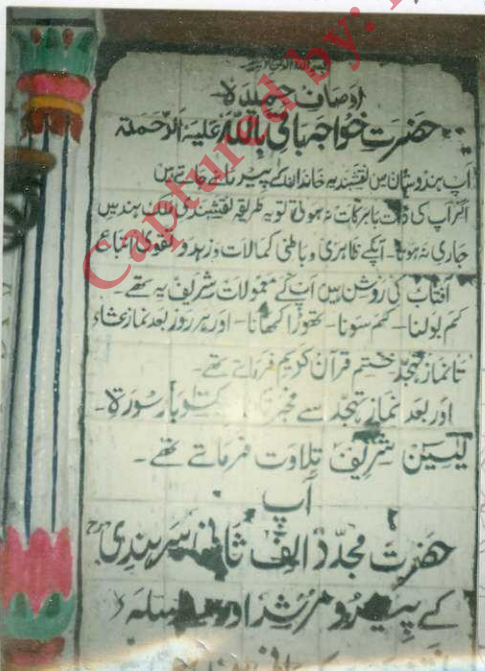 اوصاف حمیدہ
حضرت خواجہ باقی باللہ علیہ الرحمتہ
آپ ہندوستان میں نقشبندیہ خاندان کے پیر مانے جاتے ہیں
اگر آپ کی ذات بابرکات نہ ہوتی تو یہ طریقہ نقشبندی ملک ہند میں
جاری نہ ہوتا۔ آپکے ظاہری و باطنی کمالات و زہد و تقویٰ اتباع
آفتاب کی روشن ہیں آپ کے معمولات شریف یہ تھے۔
کم بولنا۔ کم سونا۔ تھوڑا کھانا۔ اور ہر روز بعد نماز عشاء
تا نماز تہجد ختم قرآن کریم فرماتے تھے۔
اور بعد نماز تہجد سے بار سورۃ۔
یٰسین شریف تلاوت فرماتے تھے۔
آپ
حضرت مجدد الف ثانی سرہندی
کے پیر و مرشد اور
Captured by: